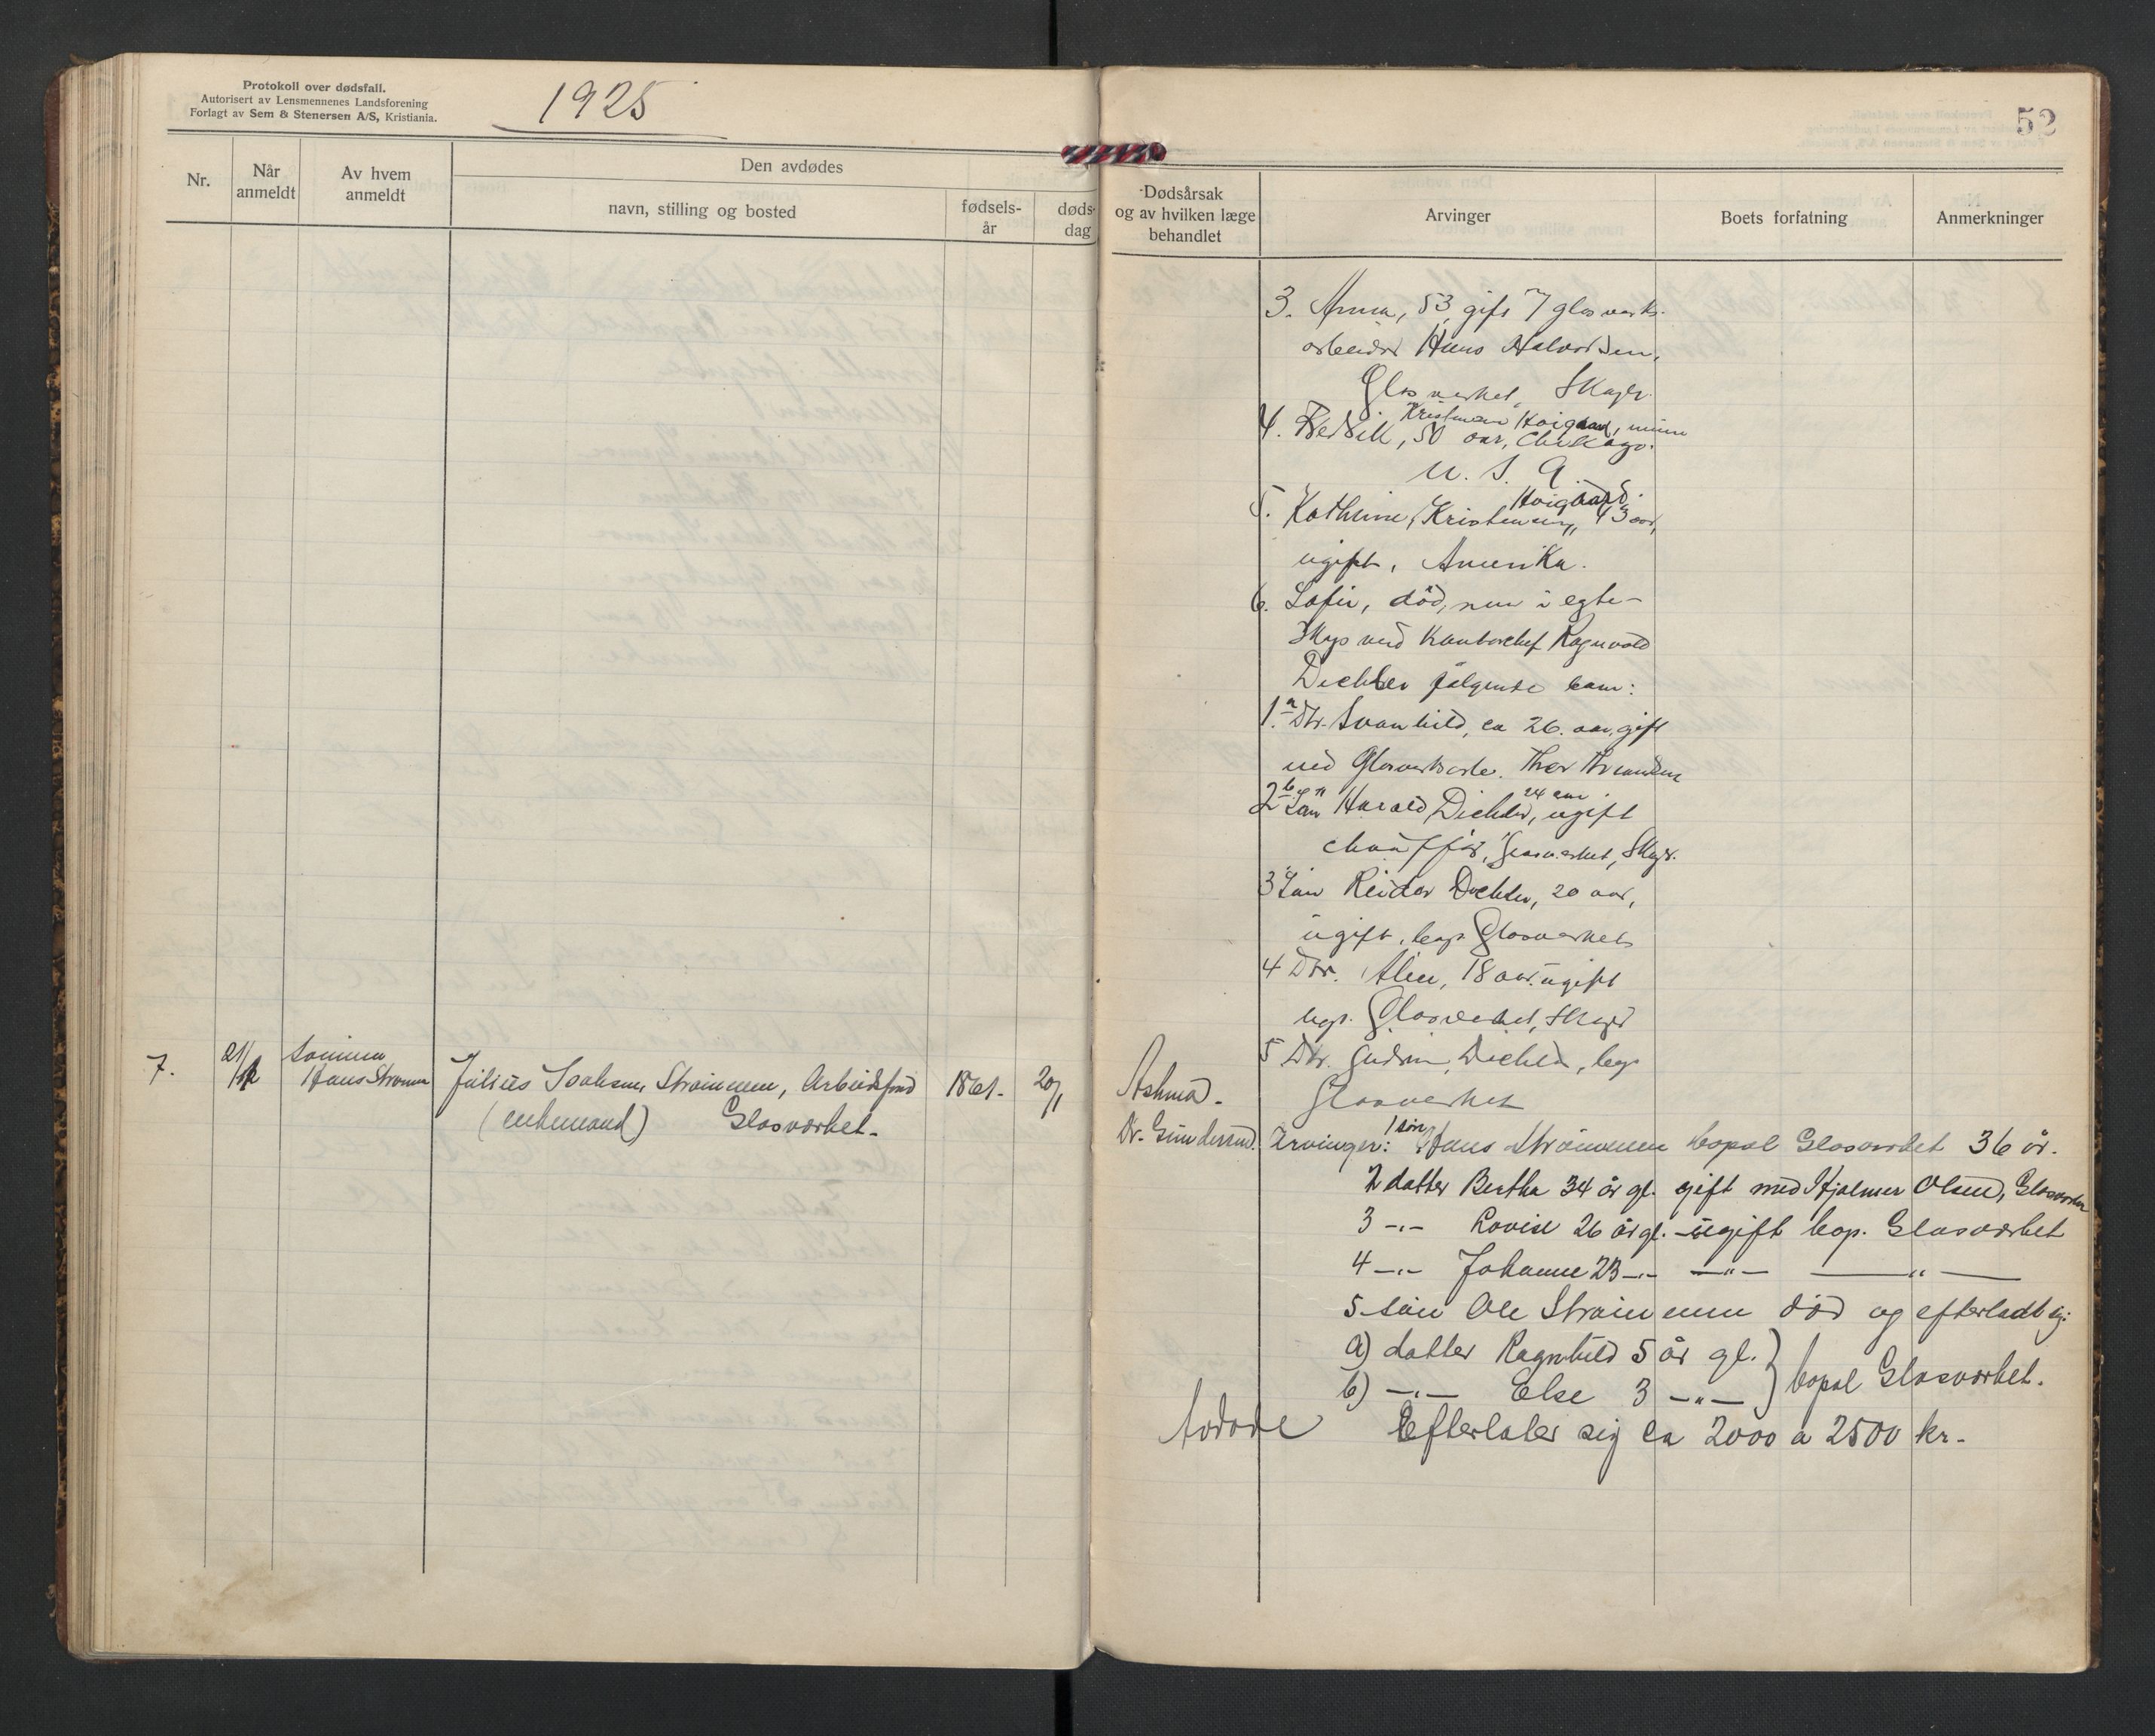 Protokoll over dødsfall.
Autorisert av Lensmennenes Landsforening
Forlagt av Sem & Stenersen A/S, Kristiania.
1925
52
Nr.
Når
anmeldt
Av hvem
anmeldt
Den avdødes
navn, stilling og bosted
fødsels-
år
døds-
dag
Dødsårsak
og av hvilken læge
behandlet
Arvinger
Boets forfatning
Anmerkninger
3. Anna, 53, gift 7 glasverks-
arbeider Hans Halvorsen,
Glasverket, Skogr.
Kristensen Hoigaard,
4. Bersvik, 50 aar, Chikago.
U. S. A.
Hoigaard.
5. Kathrine Kristensen, 43 aar,
ugift, Amerika.
6. Sofie, død, men i egte-
skap med Kontorchef Ragnvald
Dichler følgende barn:
1. a Dtr. Svanhild, ca 26. aar, gift
med Glasverksarb. Thor
24 aar
2 b Søn Harald Dichler, ugift
chauffør, Glasverket, Skogr.
3 Søn Reidar Dichler, 20 aar,
ugift, bop. Glasverket
4 Dtr. 18 aar. ugift
bop. Glasverket, Skogr
5 Dtr. Gudrun Dichler, bop
Glasverket
7.
21/1
Sønnen
Hans Strømmen
Julius Isaksen Strømmen, Arbeidsfmd
(enkemand) Glasværket.
1861.
20/1
Asthma.
Dr. Gundersen.
Arvinger: 1 søn Hans Strømmen bopæl Glasværket 36 år.
2 datter Bertha 34 år gl. gift med Hjalmer Olsen, Glasværket
3 -"- Lovise 26 år gl. ugift bop. Glasværket
4 -"- Johanne 23 -"- -"- -"-
5 søn Ole Strømmen død og efterladt sig:
a) datter Ragnhild 5 år gl.
b) -"- Else 3 -"- } bopæl Glasværket.
Avdøde Efterlater sig ca 2000 a 2500 kr.